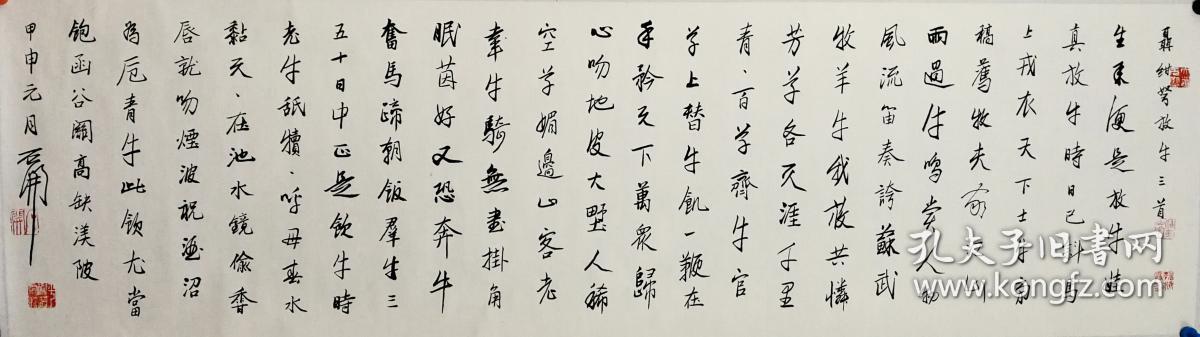 聶紺弩放牛三首
生來便是放牛娃
真放牛時日已斜馬
上戎衣天下士牛
稿薦牧夫家
雨過牛鳴
風流笛奏誇蘇武
牧羊牛我放共憐
芳草各天涯千里
青青百草齊牛官
草上替牛飢一鞭在
手矜天下萬眾歸
心吻地皮大野人稀
空草媚邊山客老
牽牛騎無書掛角
眠茵好又恐奔牛
奮馬蹄朝飯羣牛三
五十日中正是飲牛時
老牛舐犢犢呼母春水
黏天天在池水鏡偷香
唇就吻煙波祝酒沼
為卮青牛此飲尤當
飽函谷關高缺渼陂
甲申元月
孔夫子旧书网